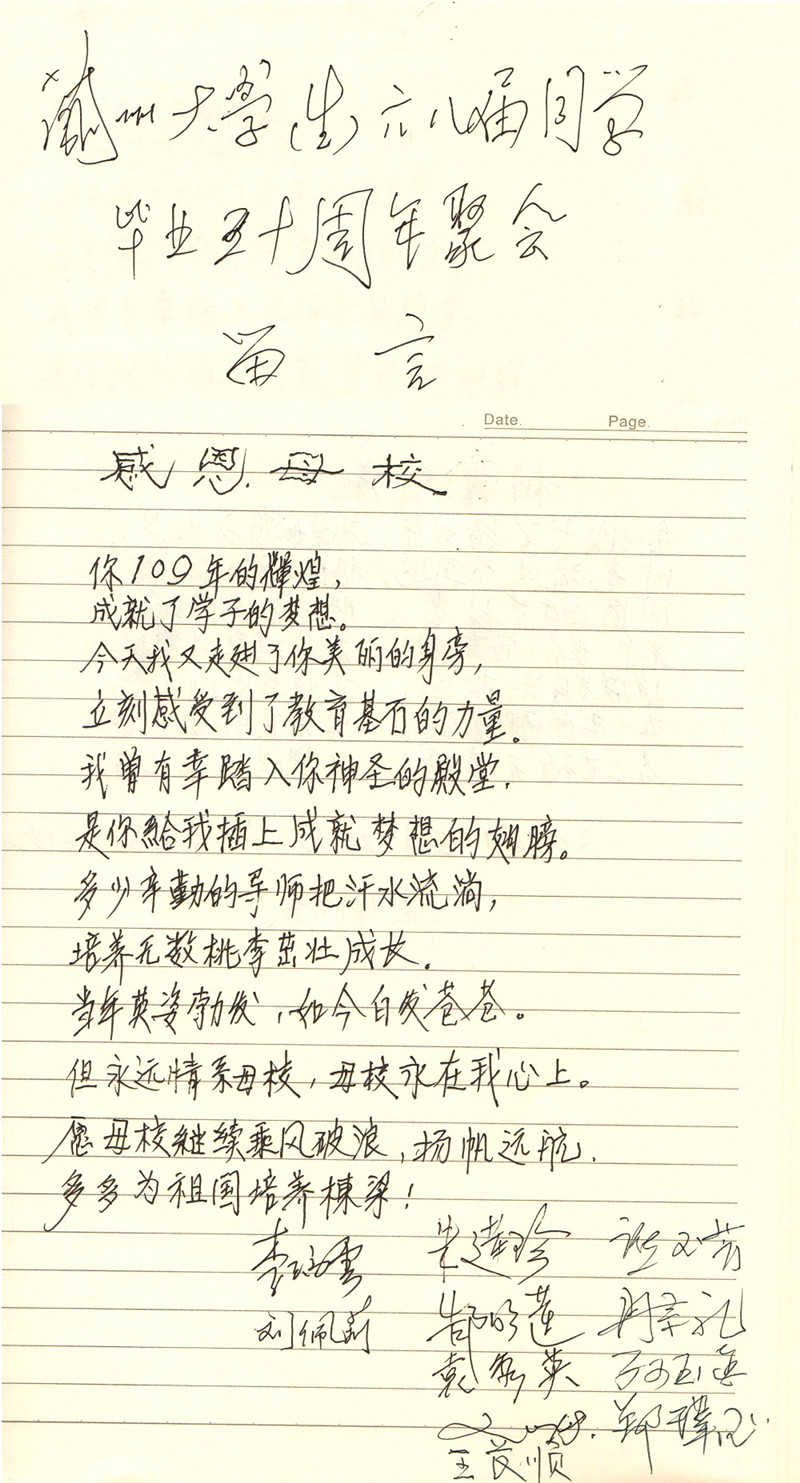 兰州大学(生)六八届同学
毕业五十周年聚会
留言
Date. Page.
感恩母校
你109年的辉煌,
成就了学子的梦想。
今天我又走进了你美丽的身旁,
立刻感受到了教育基石的力量。
我曾有幸踏入你神圣的殿堂.
是你给我插上成就梦想的翅膀。
多少辛勤的导师把汗水流淌,
培养无数桃李茁壮成长.
当年英姿勃发,如今白发苍苍。
但永远情系母校,母校永在我心上。
愿母校继续乘风破浪,扬帆远航.
多多为祖国培养栋梁!
朱莲珍
刘佩莉 郜明莲
袁秀英
王茂顺